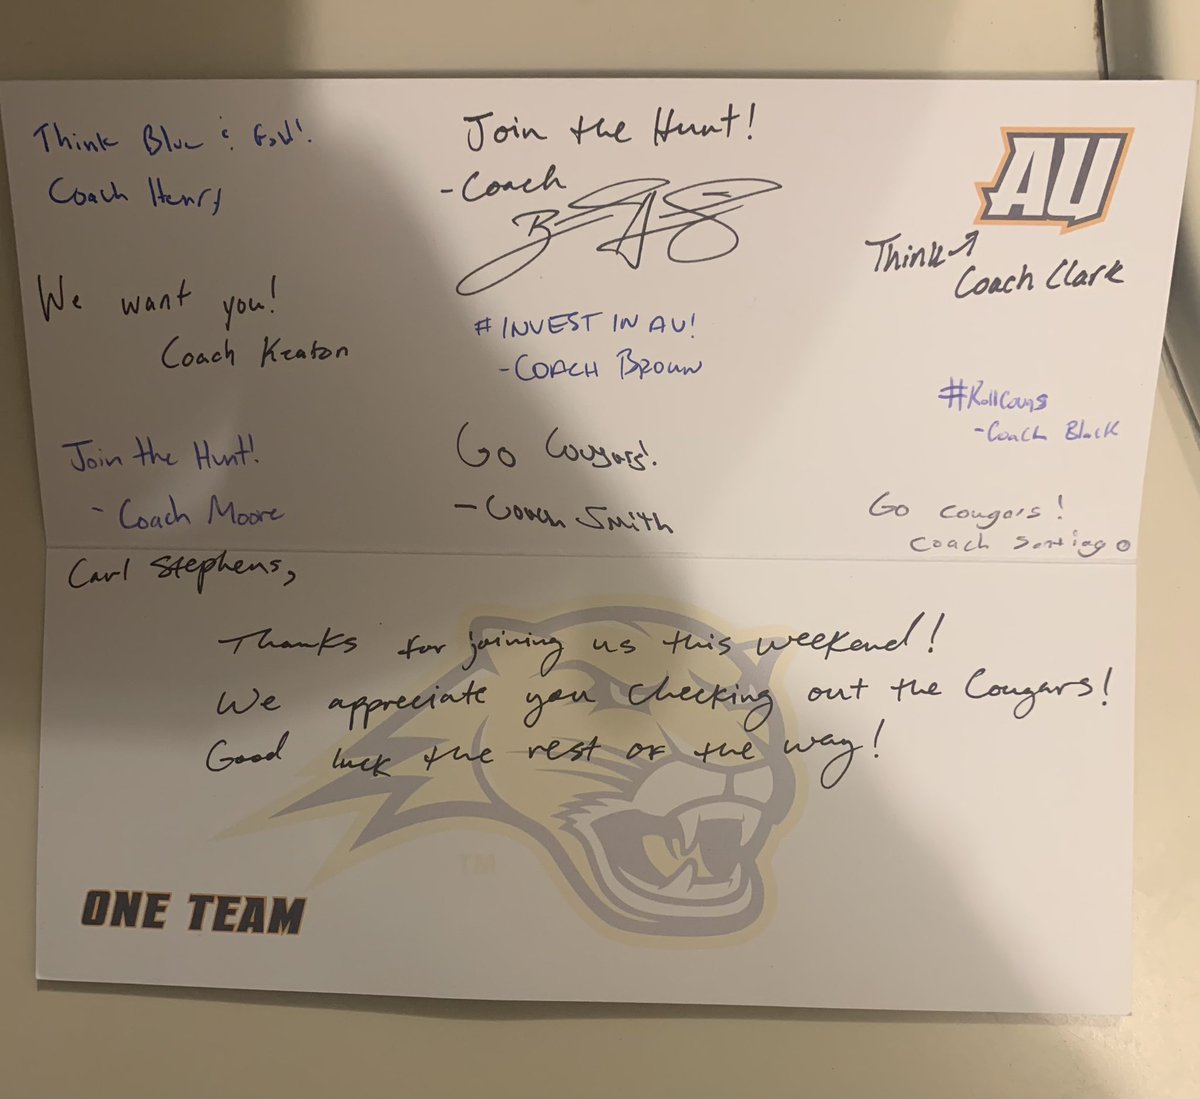 Think Blue & Gold!
Coach Henry
Join the Hunt!
-Coach
AU
Think
Coach Clark
We want you!
Coach Keaton
# INVEST IN AU!
-COACH BROWN
#RollCougs
-Coach Black
Join the Hunt!
- Coach Moore
Go Cougars!
- Coach Smith
Go Cougars!
Coach Santiago
Carl Stephens,
Thanks for joining us this weekend!
We appreciate you checking out the Cougars!
Good luck the rest of the way!
TM
ONE TEAM